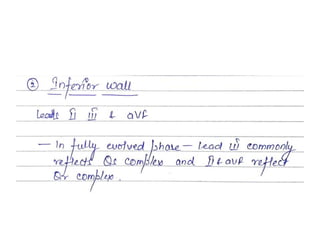 ② Inferior wall
Leads II III & aVF
— In fully evolved phase — Lead III commonly
reflects Qs complex and II & aVF reflect
Qr complex.